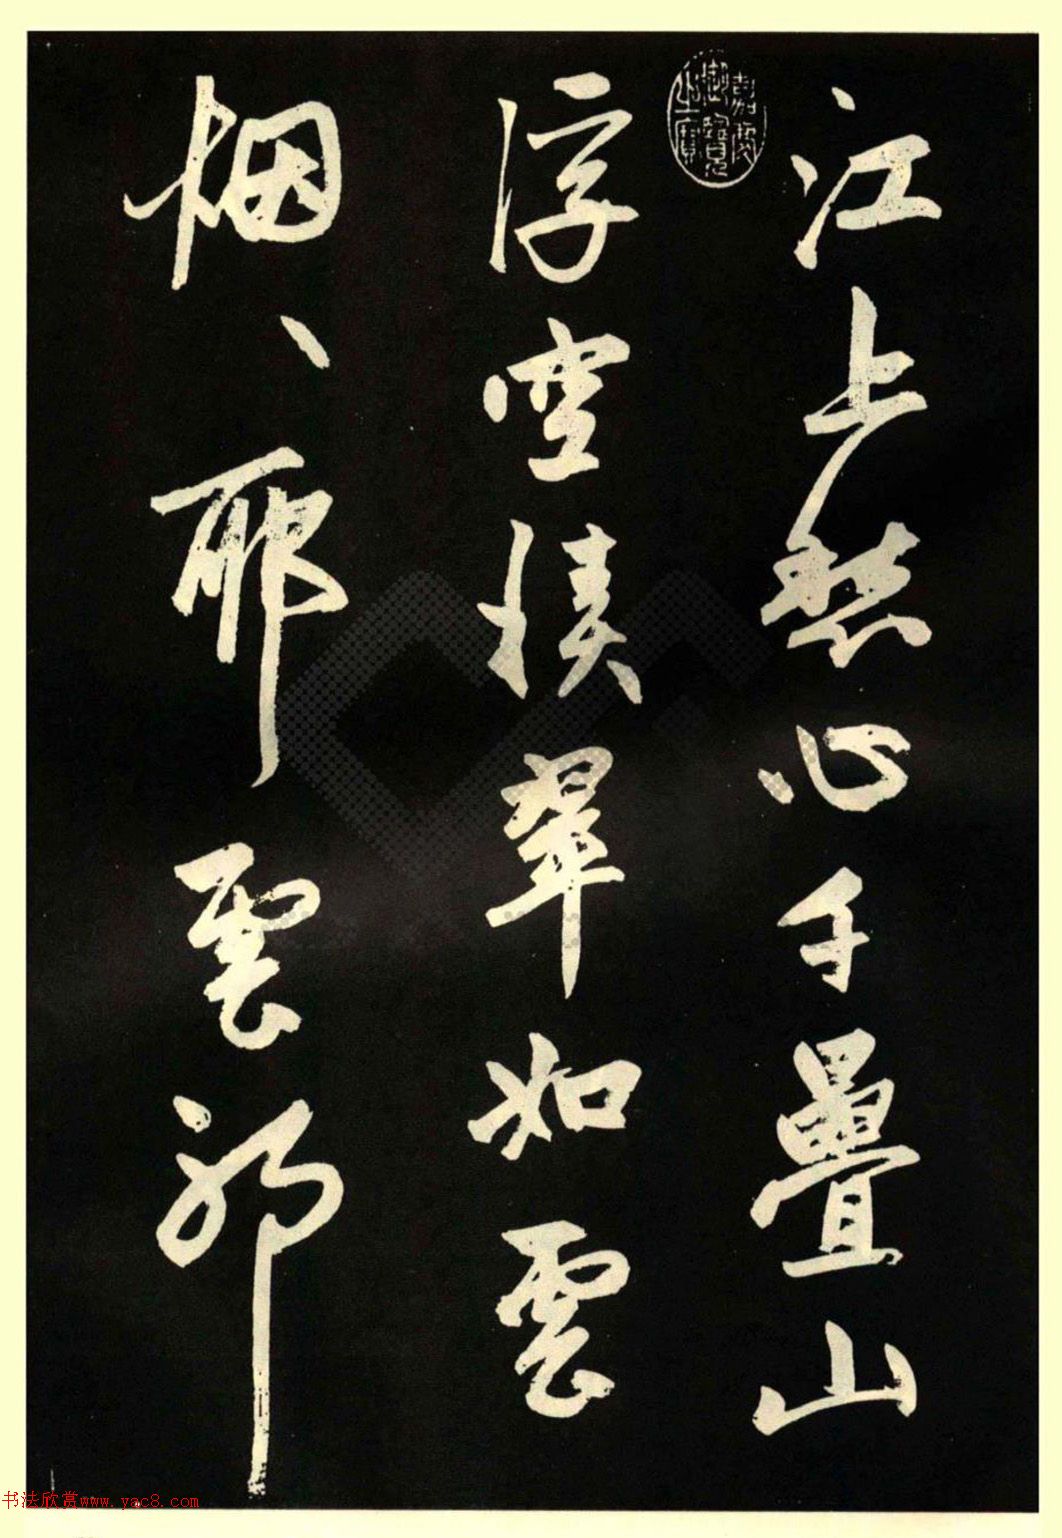 江上愁心千疊山
浮空積翠如雲
烟、耶雲耶
嘉慶御覽之寶
书法欣赏www.yac8.com